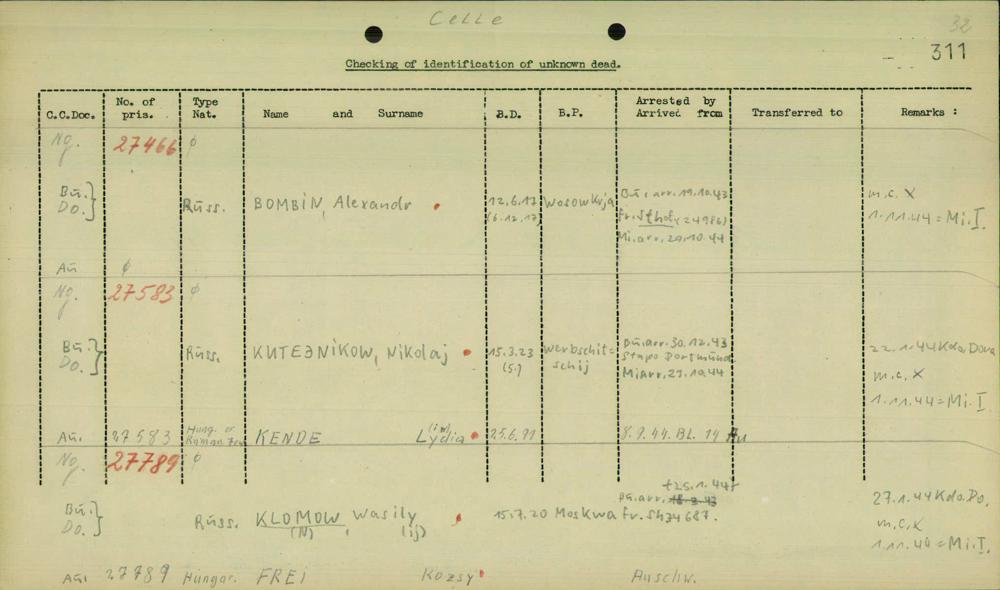 Celle
32
311
Checking of identification of unknown dead.
C.C.Doc. No. of pris. Type Nat. Name and Surname B.D. B.P. Arrested by Arrived from Transferred to Remarks :
Ng. 27466 ∅
Bu. Do. } Russ. BOMBIN, Alexandr 12.6.17 (6.12.17) Bu, arr. 19.10.43 m.c. X
fr. Sthof, 24986) 1.11.44 = Mi. I.
Mi. arr. 29.10.44
Au ∅
Ng. 27583 ∅
Bu. Do. } Russ. KUTEJNIKOW, Nikolaj 15.3.23 (5.) Werbschit= schij Bu. arr. 30.12.43 22.1.44 Kdo. Dora
Stapo Dortmund m.c. X
Mi arr. 29.10.44 1.11.44 = Mi. I
Au. 27583 Hung. or KENDE Lydia 25.6.11 8.9.44. BL. 14 Au
Ng. 27789 ∅
Bu. Do. } Russ. KLOMOW, Wasily (N) (ij) 15.7.20 Moskwa +25.1.44
Bu. arr. 18.3.43 27.1.44 Kdo. Do.
fr. Sh34687. m.c. X
1.11.44 = Mi. I.
Au. 27789 Hungar. FREI Rozsy Auschw.